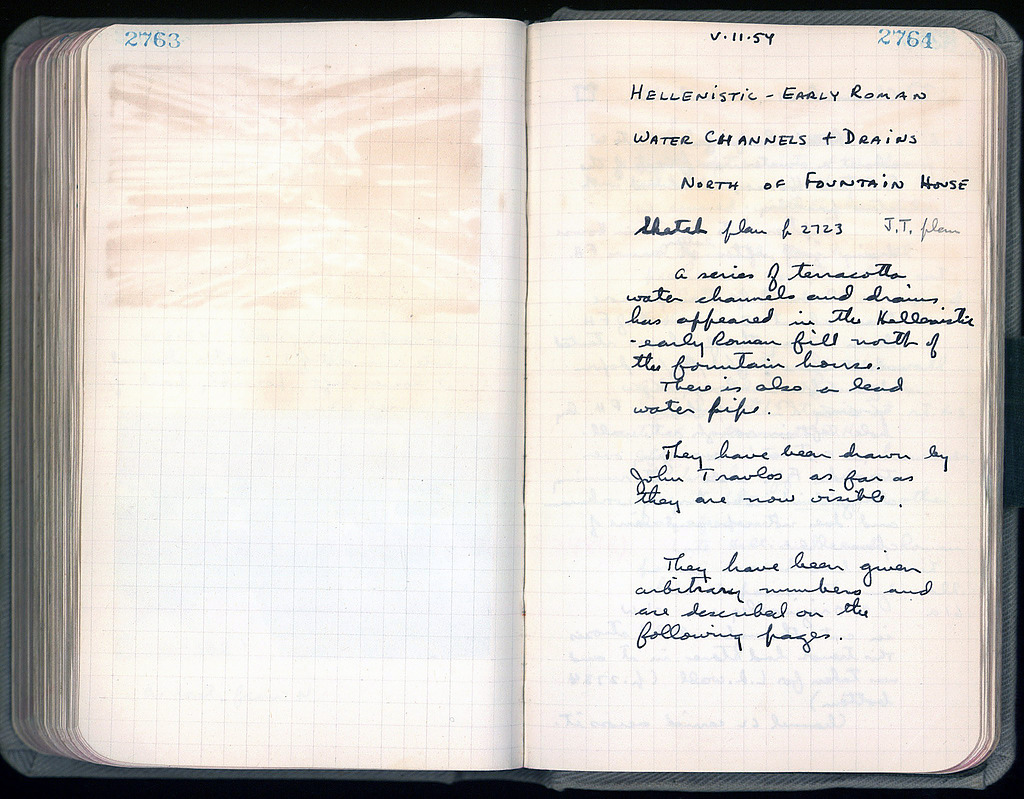 2763
V.11.54
2764
HELLENISTIC - EARLY ROMAN
WATER CHANNELS + DRAINS
NORTH OF FOUNTAIN HOUSE
Sketch plan p 2723 J.T. plan
A series of terracotta
water channels and drains
has appeared in the Hellenistic
-early Roman fill north of
the fountain house.
There is also a lead
water pipe.
They have been drawn by
John Travlos as far as
they are now visible.
They have been given
arbitrary numbers and
are described on the
following pages.